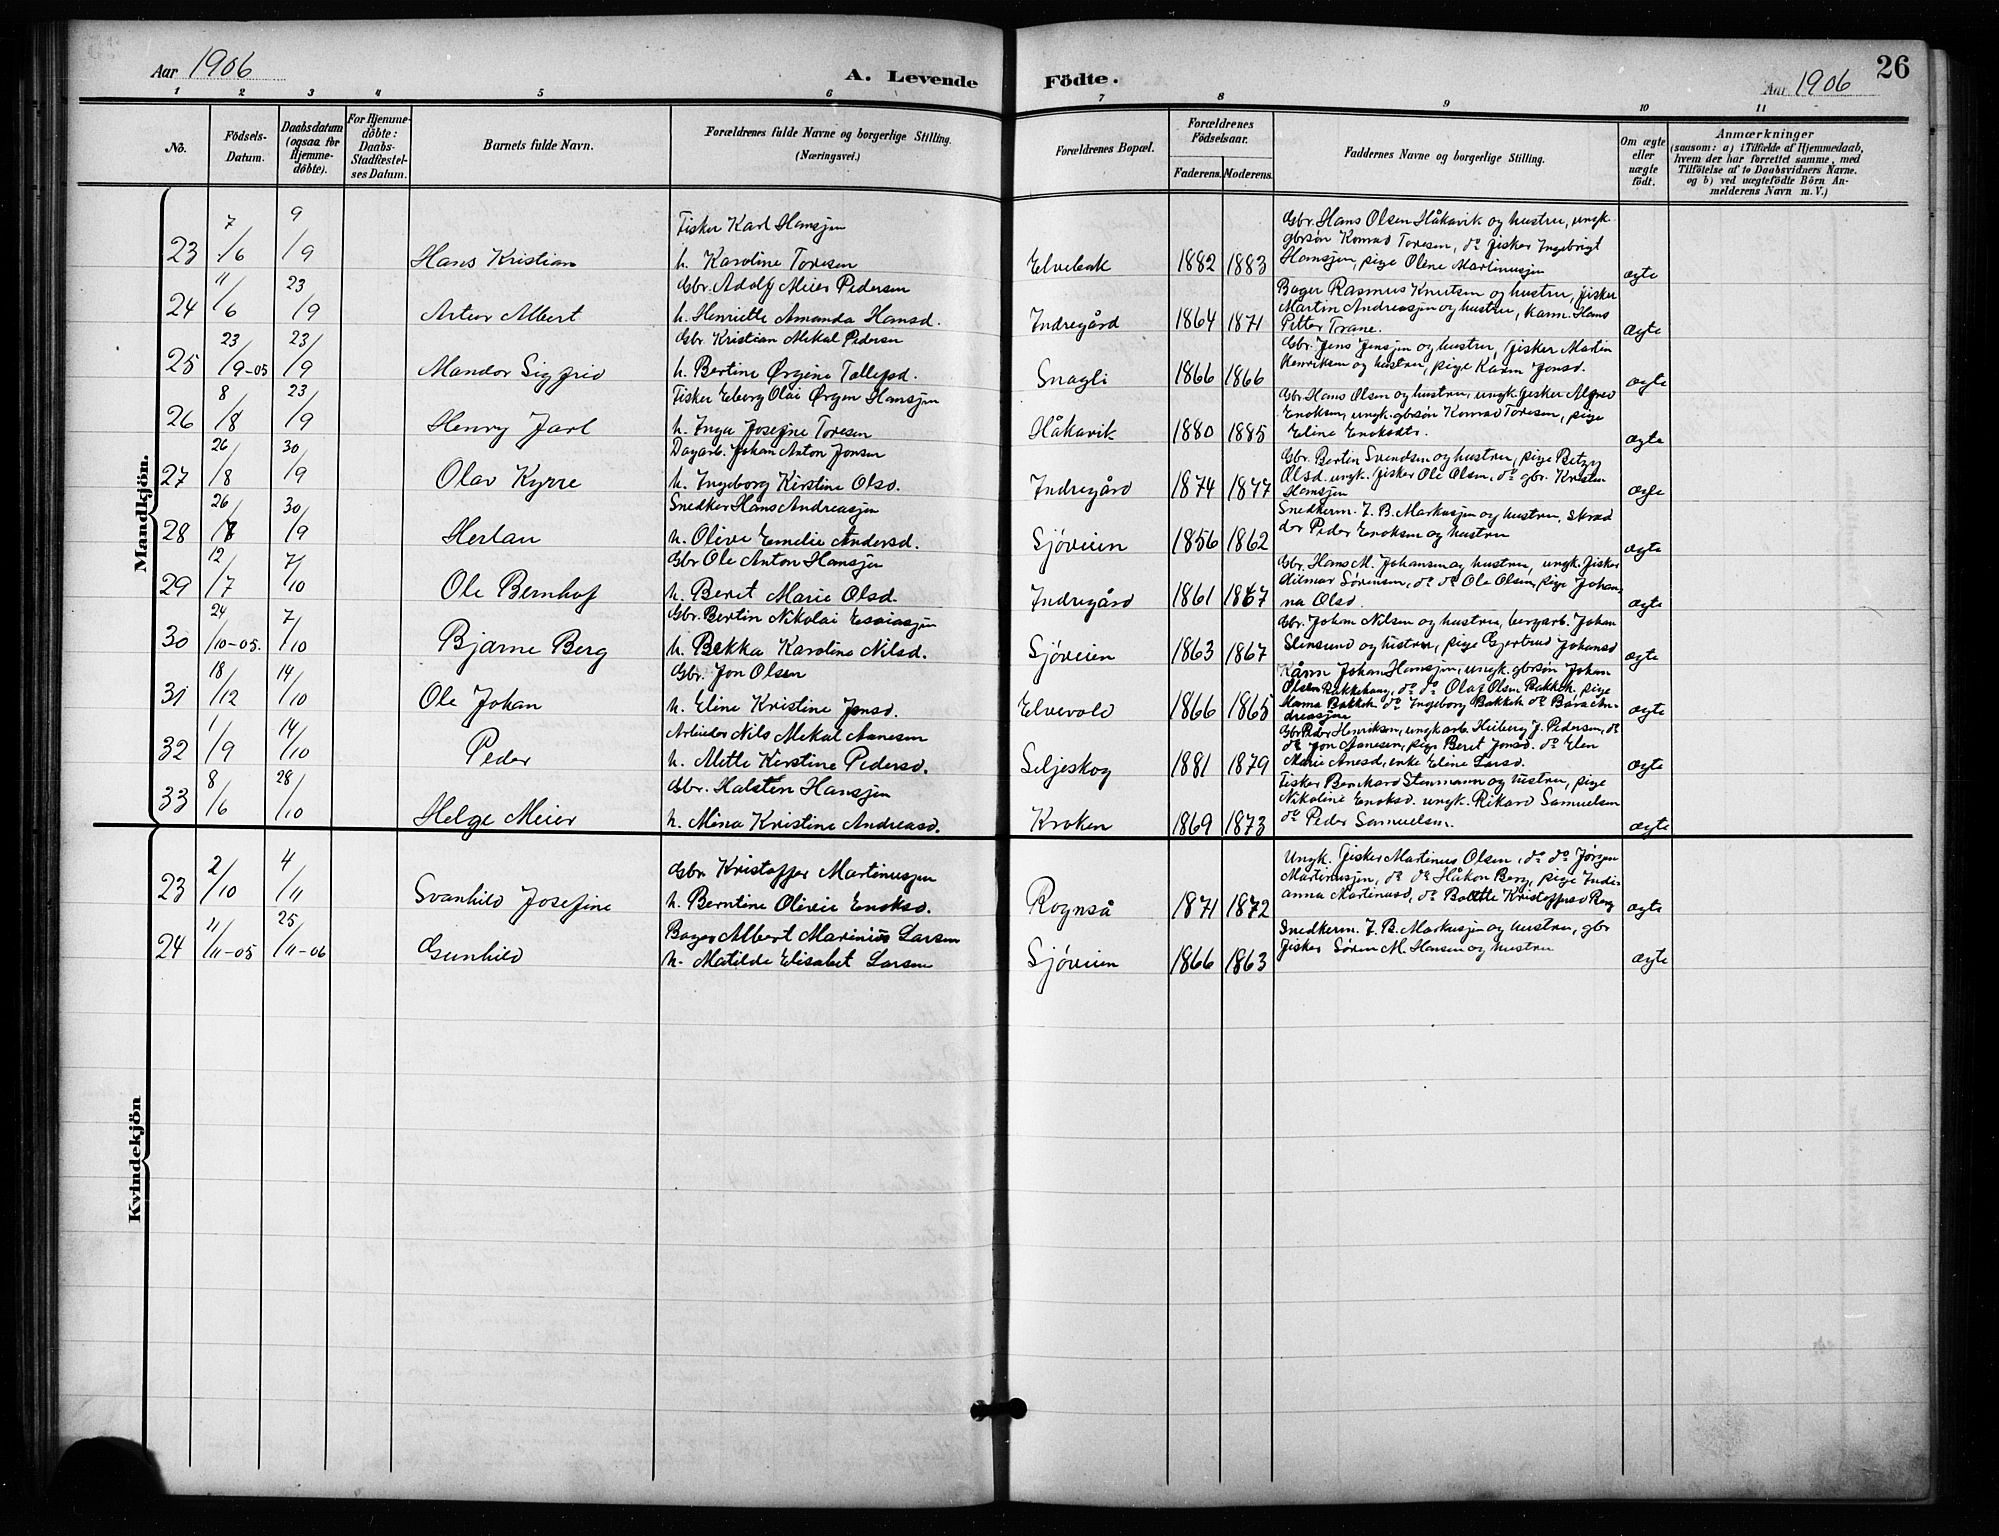 Aar 1906
A. Levende
Fødte.
Aar 1906
26
1 2 3 4 5 6 7 8 9 10 11
No.
Födsels-
Datum.
Daabsdatum
(ogsaa for
Hjemme-
döbte).
For Hjemme-
döbte:
Daabs-
Stadfœstel-
ses Datum.
Barnets fulde Navn.
Forœldrenes fulde Navne og borgerlige Stilling.
(Nœringsvei.)
Forœldrenes Bopœl.
Forœldrenes
Födselsaar.
Faderens. Moderens.
Faddernes Navne og borgerlige Stilling.
Om œgte
eller
uœgte
født.
Anmœrkninger
(saasom: a) i Tilfœlde af Hjemmedaab,
hvem der har forrettet samme, med
Tilföielse af to Daabsvidners Navne.
og b) ved uœgtefödte Börn An-
melderens Navn m. V.)
Mandkjön.
23 7/6 9/9 Hans Kristian
Fisker Karl Hansjen
h. Karoline Toresen
Elvebak 1882 1883
Gbr. Hans Olsen Håkavik og hustru, ungk.
gbrsøn Konrad Toresen, do fisker Ingebrigt
Hansjen, pige Oline Martinusjen
ægte
24 11/6 23/9 Artur Albert
Gbr. Adolf Meier Pedersen
h. Henriette Amanda Hansd.
Indregård 1864 1871
Bager Rasmus Knutsen og hustru, fisker
Martin Andreasjen og hustru, kann. Hans
Petter Trane.
ægte
25 23/9-05 23/9 Mandor Sigfrid
Gbr. Kristian Mekal Pedersen
h. Bertine Ørgine Tollefsd.
Snagli 1866 1866
Gbr. Jens Jensjen og hustru, fisker Martin
Henriksen og hustru, pige Karen Jonsd.
ægte
26 8/8 23/9 Henry Jarl
Fisker Eberg Olai Ørgen Hansjen
h. Inga Josefine Toresen
Håkavik 1880 1885
Gbr. Hans Olsen og hustru, ungk. fisker Alfred
Enoksen, ungk. gbrsøn Konrad Toresen, pige
Eline Enoksdtr.
ægte
27 26/8 30/9 Olav Kyrre
Dagarb. Johan Anton Jonsen
h. Ingeborg Kirstine Olsd.
Indregård 1874 1877
Gbr. Bertin Svendsen og hustru, pige Betzy
Olsd. ungk. fisker Ole Olsen, do gbr. Kristen
Hansjen
ægte
28 26/7 30/9 Herlau
Snedker Hans Andreasjen
h. Olive Emelie Andersd.
Sjøveien 1856 1862
Snedkerm. J. B. Markusjen og hustru, skræd
der Peder Enoksen og hustru
ægte
29 12/7 7/10 Ole Bernhof
Gbr Ole Anton Hansjen
h. Beret Marie Olsd.
Indregård 1861 1867
Gbr. Hans M. Johansen og hustru, ungk. fisker
Hilmar Sørensen, do do Ole Olsen, pige Johan-
na Olsd.
ægte
30 24/10-05. 7/10 Bjarne Berg
Gbr. Bertin Nikolai Esaiasjen
h. Bekka Karoline Nilsd.
Sjøveien 1863 1867
Gbr. Johan Nilsen og hustru, bergarb. Johan
Slinsund og hustru, pige Gjertrud Johansd
ægte
31 18/12 14/10 Ole Johan
Gbr. Jon Olsen
h. Eline Kristine Jonsd.
Elvevold 1866 1865
Kånn Johan Hansjen, ungk. gbrsøn Johan
Olsen Bakkehaug, do do Olaf Olsen Bakkeh. pige
Hanna Bakkeh. do Ingeborg Bakkeh do Bara An-
dreasjen
ægte
32 1/9 14/10 Peder
Arbeider Nils Mekal Aanesen
h. Mette Kirstine Pedersd.
Seljeskog 1881 1879
Gbr Peder Henriksen, ungk arb. Heiberg J. Pedersen, do
do Jon Aanesen, pige Beret Jonsd. do Elen
Marie Anesd, enke Eline Larsd.
ægte
33 8/6 28/10 Helge Meier
Gbr. Halsten Hansjen
h. Mina Kristine Andreasd.
Kroken 1869 1873
Fisker Bernhard Stenmann og hustru, pige
Nikoline Enoksd. ungk. Rikard Samuelsen
do Peder Samuelsen.
ægte
Kvindekjön
23 2/10 4/11 Svanhild Josefine
Gbr Kristoffer Martinusjen
h. Berntine Olivie Enoksd.
Rognså 1871 1872
Ungk. fisker Martinus Olsen, do do Jørgen
Martinusjen, do do Håkon Berg, pige Indi-
anna Martinusd, do Bolette Kristoffersd Berg
ægte
24 11/11-05 25/11-06 Gunhild
Bager Albert Marinius Larsen
h. Matilde Elisabet Larsen
Sjøveien 1866 1863
Snedkerm. J. B. Markusjen og hustru, gbr
fisker Søren M. Hansen og hustru
ægte